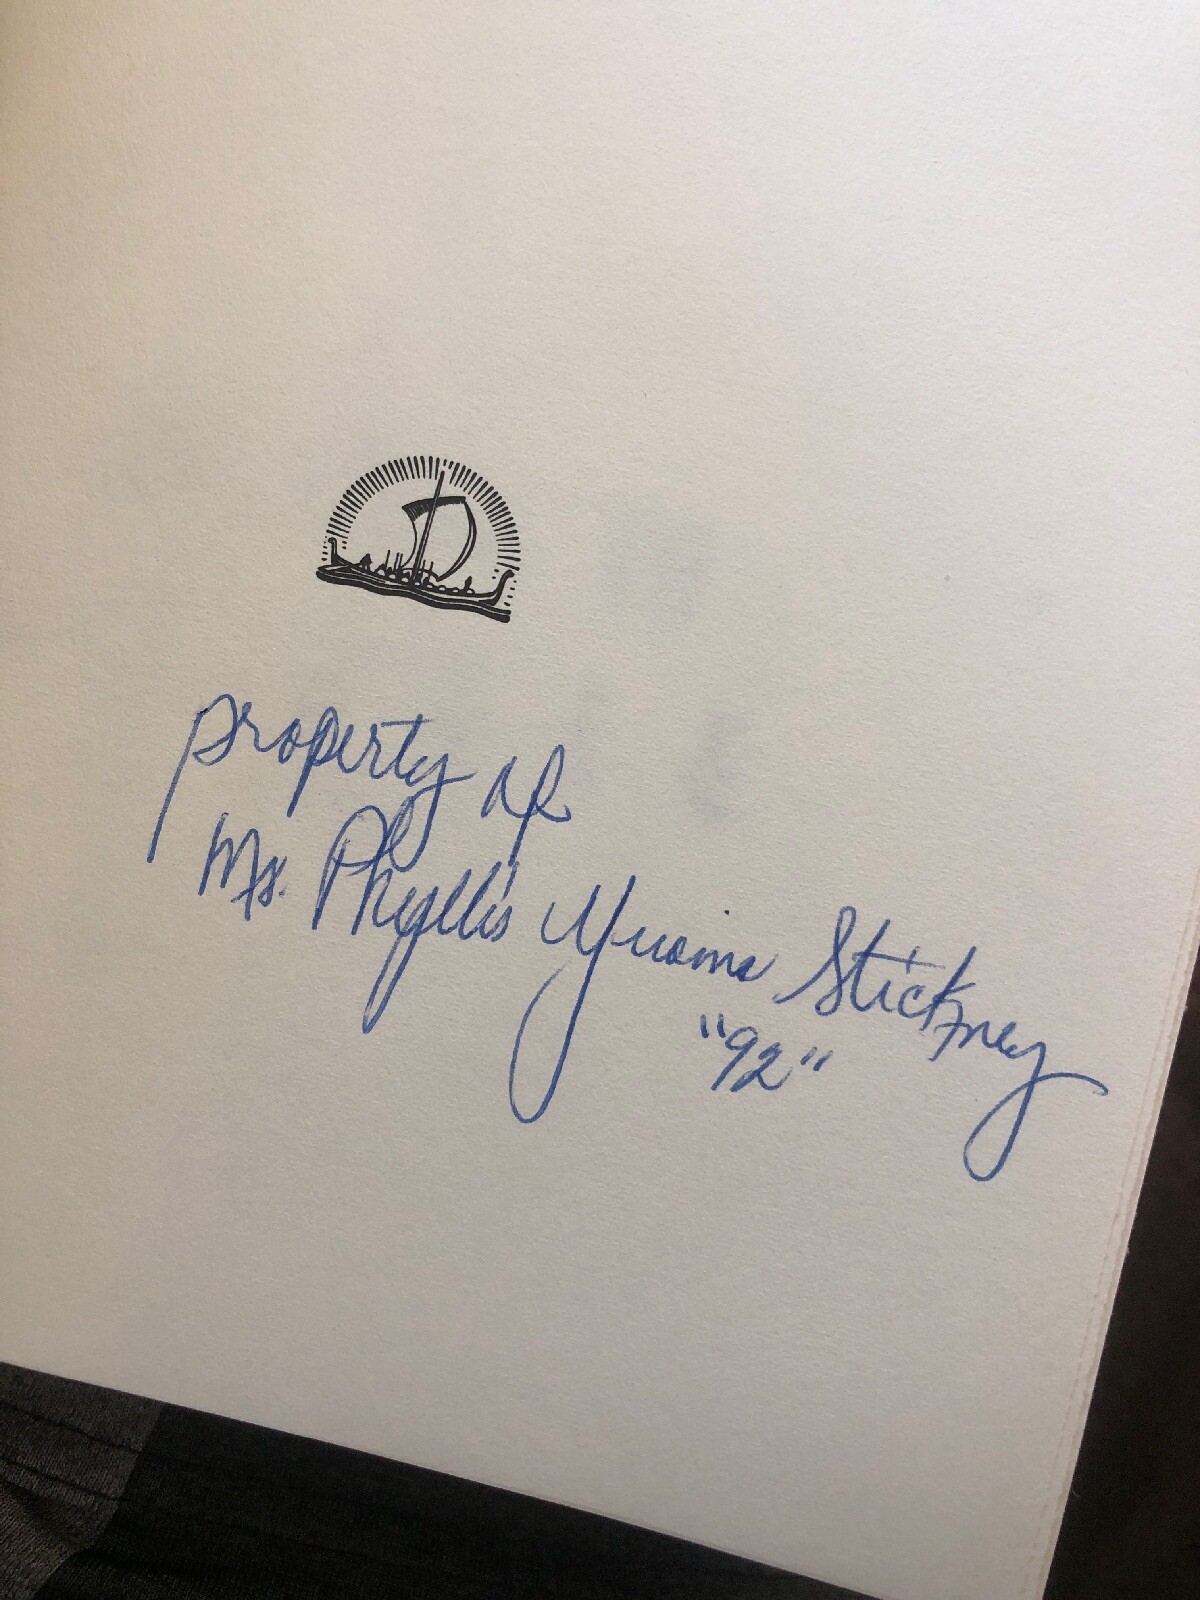 property of
Ms. Phyllis Yvonne Stickney
"92"